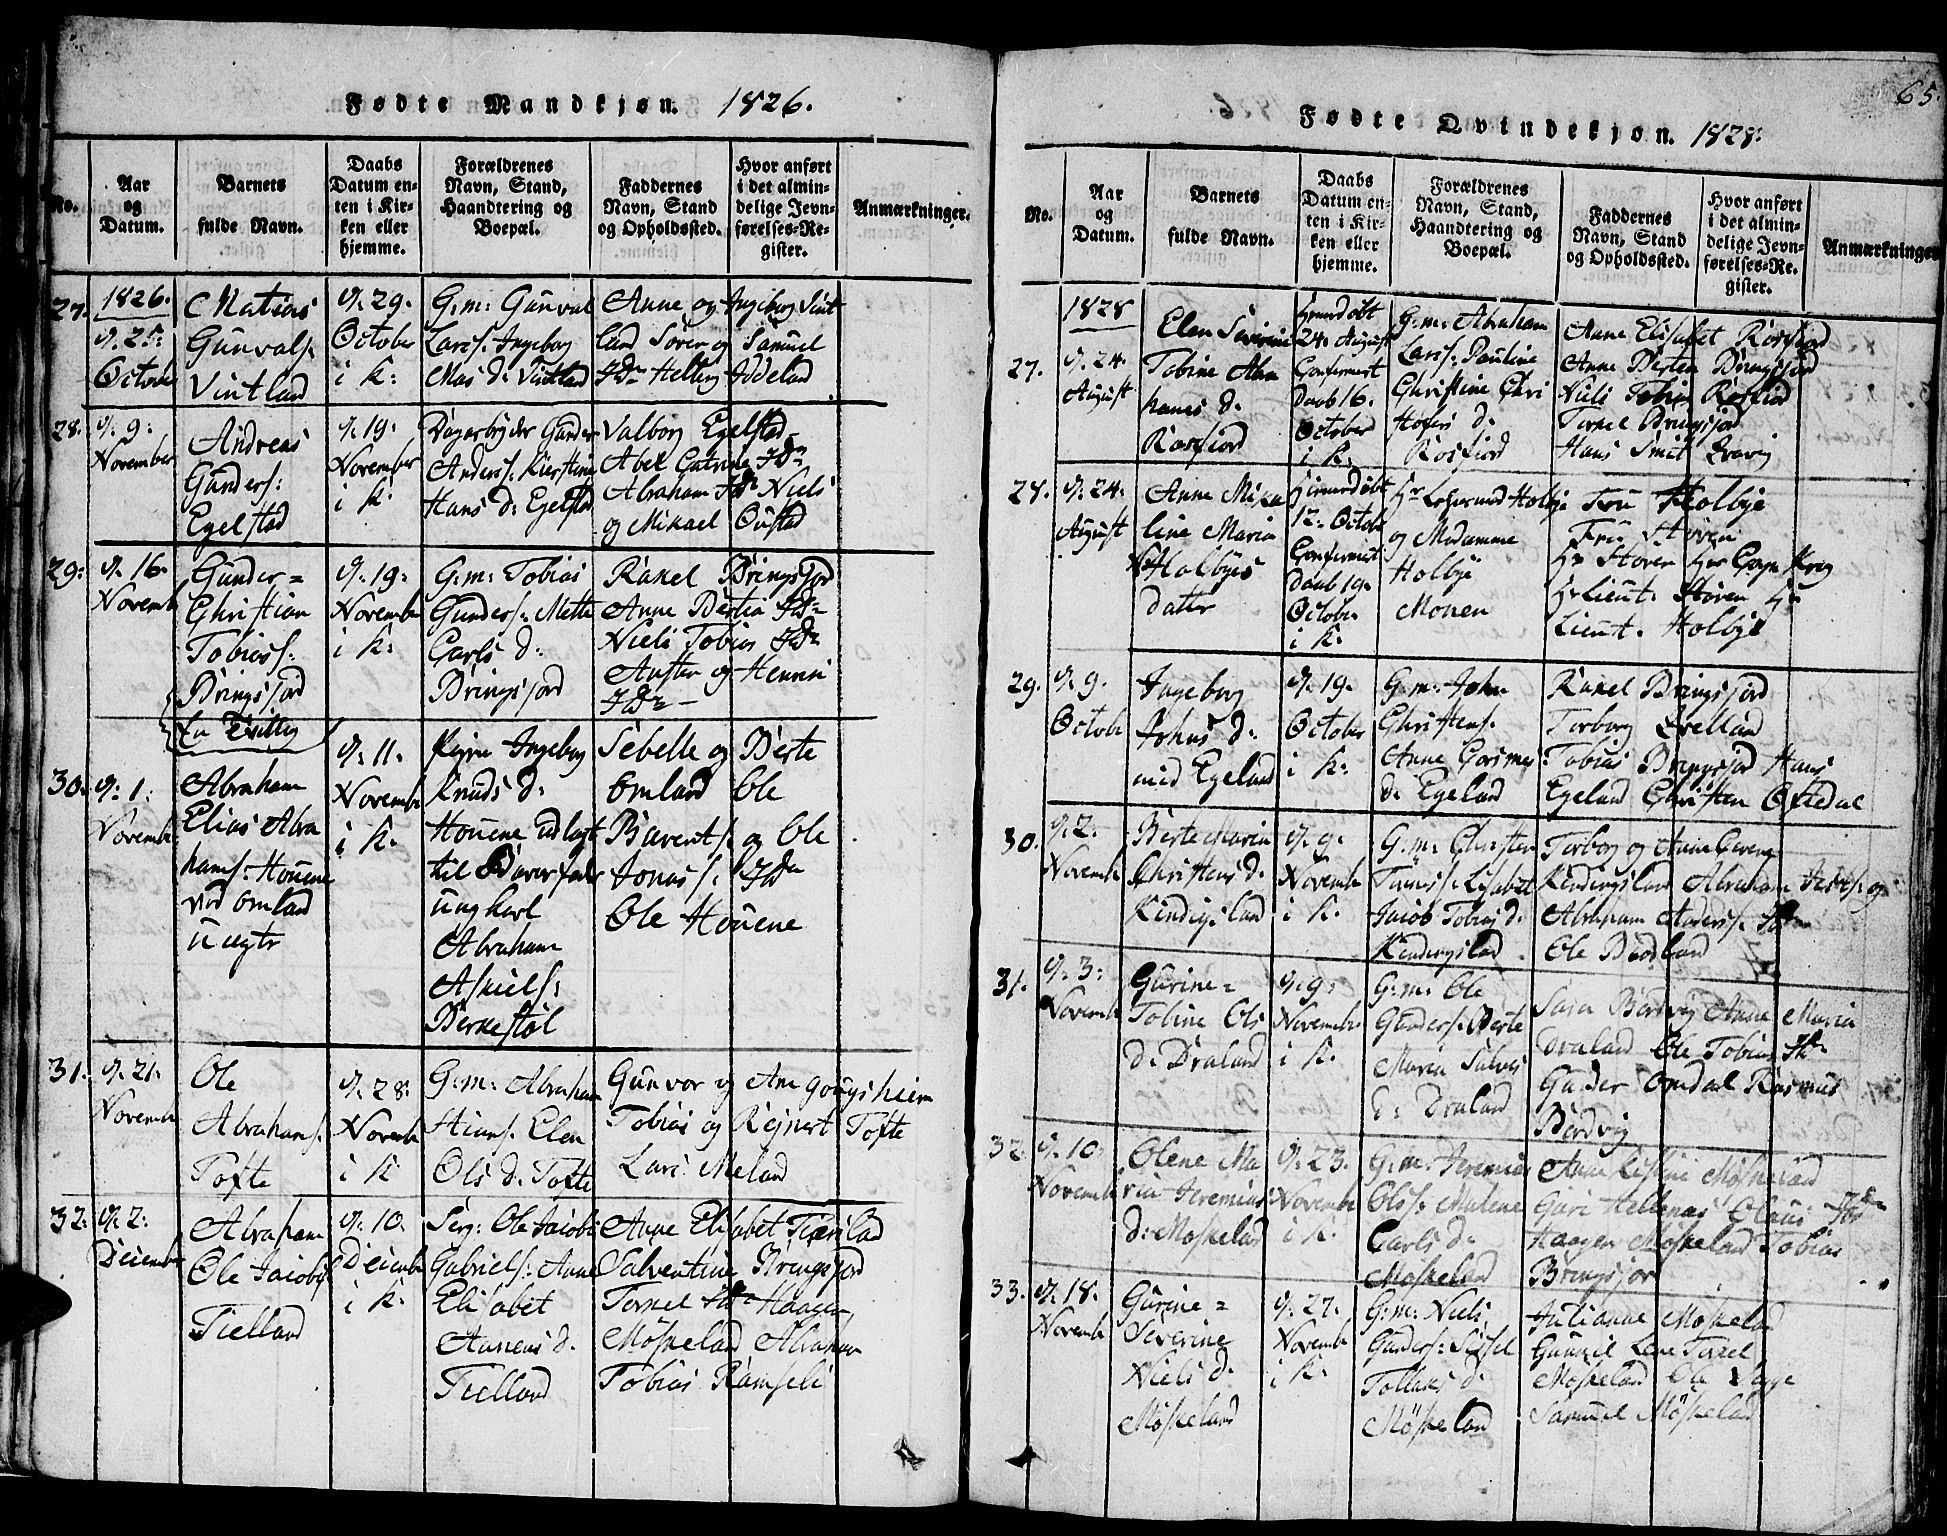 Fødte Mandkjøn. 1826.
No.
Aar
og
Datum.
Barnets
fulde Navn.
Daabs
Datum en-
ten i Kir-
ken eller
hjemme.
Forældrenes
Navn, Stand,
Haandtering og
Boepæl.
Faddernes
Navn, Stand
og Opholdssted.
Hvor anført
i det almin-
delige Jevn-
førelses-Re-
gister.
Anmærkninger.
27.
1826.
d. 25:
October
Matias
Gunvals.
Vintland
d. 29.
October
i K:
G:m: Gunval
Lars s. Ingeborg
Mas d: Vintland
Anne og Ingeborg Vint
land Søren og Samuel
Helberg Iddeland
28.
d. 9:
November
Andreas
Gunders:
Egelstad
d. 19.
November
i K:
Gunder
Anders s. Kirstine
Hans d: Egelstad
Valborg Egelstad
Abel Catrine Jd:
Abraham Jd: Niels
og Mikael Oustad
29:
d. 16.
Novemb
Gunder=
Christian
Tobias s:
Bringsjord
d. 19:
November
i K:
G:m: Tobias
Gunders: Mette
Carls d:
Bringsjord
Rakel Bringsjord
Anne Bertia Jd:
Niels Tobias Jd:
og Henrik
Jd: –
En Tvilling
30.
d. 1:
Novembe
Abraham
Elias Abra
hams: Houene
ved Omland
uægte
d. 11.
Novembe
i K.
Pigen Ingeborg
Knuds d:
Houene udlagt
til Barnefader
ungkarl
Abraham
Asriels:
Birkestøl
Sebelle og Berte
Omland Ole
Barents. og Ole
Jonas s. Jd:
Ole Houene
31.
d. 21.
Novemb
Ole
Abrahams.
Tofte
d. 28.
Novemb
i K
G:m: Abraham
Stians. Elen
Ols d: Tofte
Gunvor og Ane Gouysheim
Tobias og Rejnert Tofte
Lars Meland
32.
d. 2:
December
Abraham
Ole Jacobs
Tielland
d. 10.
Decembe
i K.
Serg: Ole Jacobs
Gabriels: Anne
Elisabet
Aanens d.
Tielland
Anne Elisabet Tierisland
Salventine Bringsjord
Terkel Jd: Haagen
Møskeland Abraham
Tobias Ramslie
65.
Fødte Qvindekjøn. 1828.
No.
Aar
og
Datum.
Barnets
fulde Navn.
Daabs
Datum en-
ten i Kir-
ken eller
hjemme.
Forældrenes
Navn, Stand,
Haandtering og
Boepæl.
Faddernes
Navn, Stand
og Opholdssted.
Hvor anført
i det almin-
delige Jevn-
førelses-Re-
gister.
Anmærkninger
27.
1828
d. 24.
August
Elen Severine
Tobine Abra
hams d.
Rosfiord
Hiemdøbt
24. August
Confirmert
Daab 16.
October
i K.
G:m: Abraham
Lars s. Pauline
Christine Chri
stofers d.
Rosfiord
Anne Elisabet Rosfiord
Anne Bertea Bringsjord
Niels Tobias Rosfiord
Terkel Bringsjord
Hans Smit Qvavig
28.
d. 24.
August
Anne Mika
line Maria
Holbyes
datter
Hiemdøbt
12. Octobe
Confirmert
Daab 19.
Octobe.
i K.
Holbye
og Madamme
Holbye
Monen
Fru Holbye
Fru Støren
Hr Støren
Hr Lieut. Støren Hr
Lieut. Holbye
29.
d. 9.
Octobe
Ingeborg
Johns d:
med Egeland
d. 19.
October
i K:
G:m: John
Christens.
Anne Gorsmes
d: Egeland
Rakel Bringsjord
Torborg Qvelland
Tobias Bringsjord Hans
Egeland Christen Oftedal
30.
d. 2.
Novembe
Berte Maria
Christens d.
Kindigsland
d. 9.
Novembe
i K.
G:m: Christen
Tønis s. Lisabet
Jacob Tobias d.
Kindingsland
Torborg og Anne
Kindingsland Abraham og
Abraham Anders s. Jd:
Ole Buoland
31.
d. 3:
Novemb
Gurine=
Tobine Ols
d: Draland
d. 9:
Novembe
i K.
G:m: Ole
Gunders. Berte
Maria Salves
d: Draland
Sara Bardvig Anne Maria
Draland Ole Tobias Jd:
Gunder Omdal Rasmus
Bardvig
32.
d. 10.
Novemb
Olene Ma
ria Jeremias
d: Møskeland
d. 23.
Novembe
i K.
G:m: Jeremias
Ols s. Malene
Carls d.
Møskeland
Anne Kistine Møskeland
Guri Hellenas Claus Jd:
Haagen Møskeland Tobias
Bringsjor
33.
d. 18.
Novembe
Gurine=
Severine
Niels d.
Møskeland
d. 27.
Novembe
i K.
G:m: Niels
Gunders: Sissel
Tollaks d
Møskeland
Julianne Møskeland
Gunvil Lene Terkel
Møskeland Ole Vægge
Samuel Møskeland